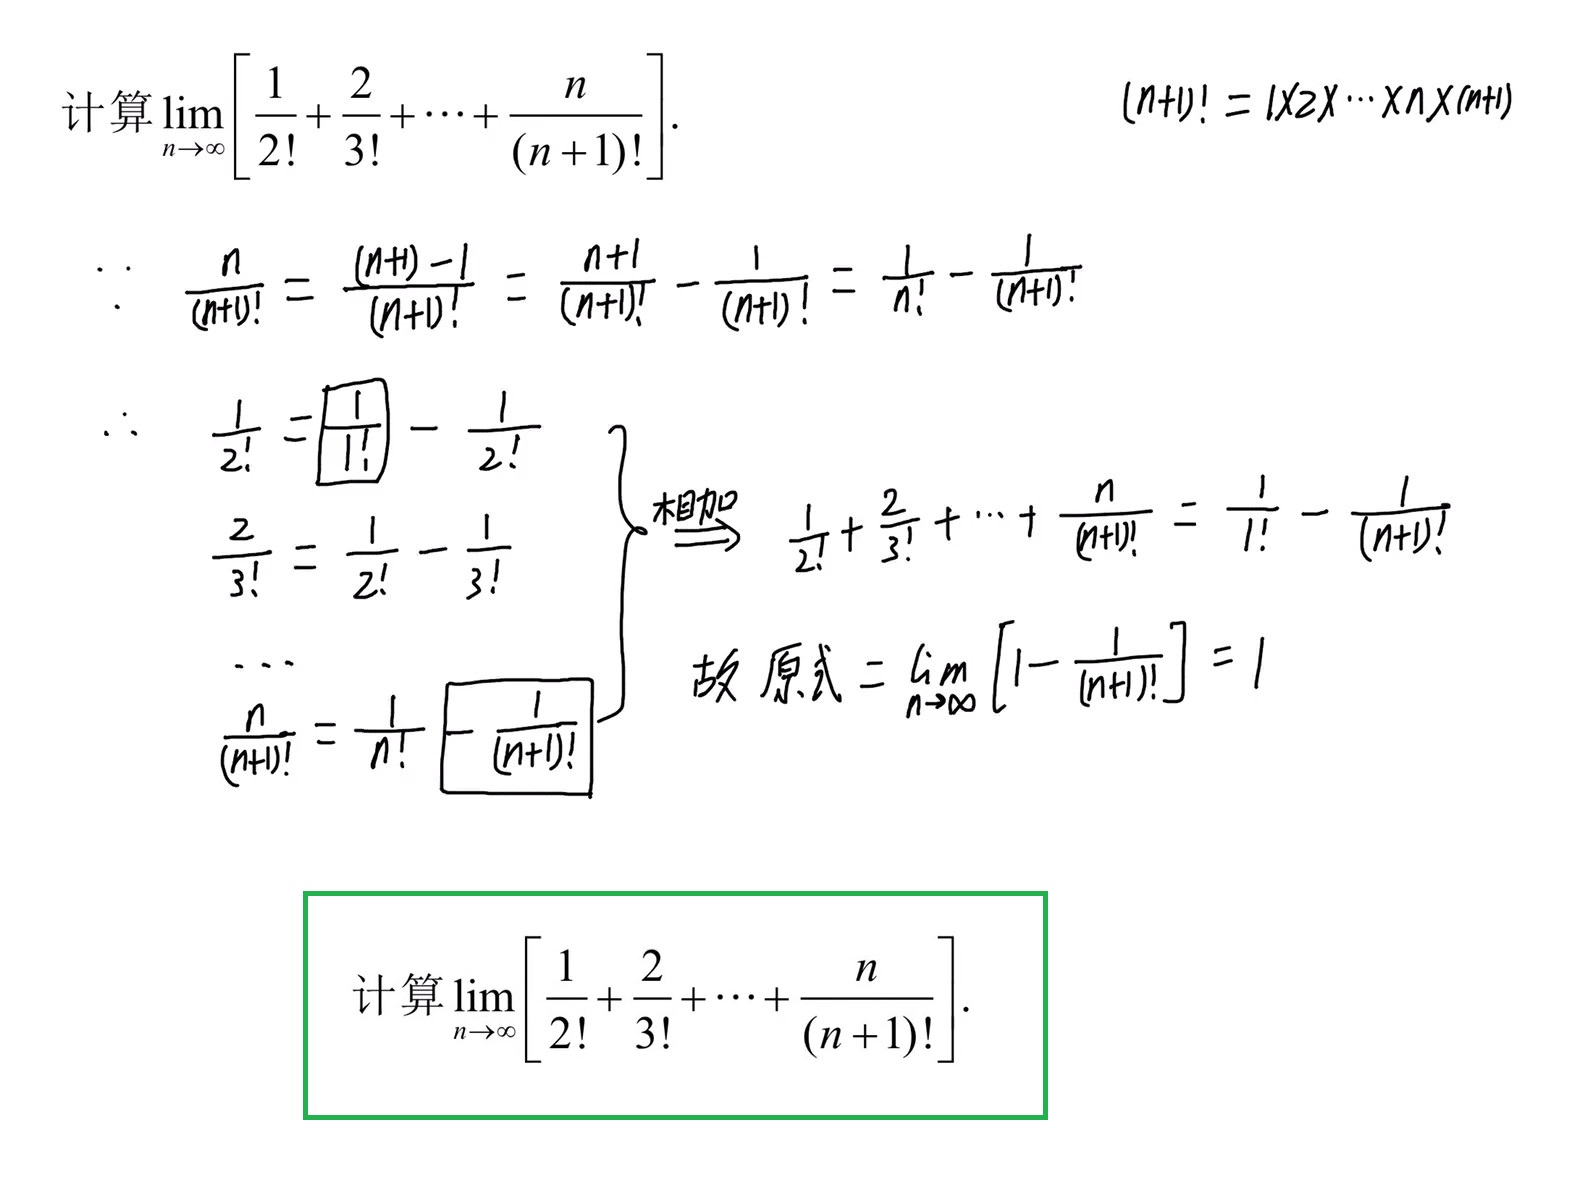 计算 lim_{n→∞} [ 1/2! + 2/3! + ⋯ + n/(n+1)! ].
(n+1)! = 1×2×⋯×n×(n+1)
∵ n/(n+1)! = ((n+1)−1)/(n+1)! = (n+1)/(n+1)! − 1/(n+1)! = 1/n! − 1/(n+1)!
∴ 1/2! = 1/1! − 1/2!
2/3! = 1/2! − 1/3!
⋯
n/(n+1)! = 1/n! − 1/(n+1)!
相加 ⇒ 1/2! + 2/3! + ⋯ + n/(n+1)! = 1/1! − 1/(n+1)!
故 原式 = lim_{n→∞} [ 1 − 1/(n+1)! ] = 1
计算 lim_{n→∞} [ 1/2! + 2/3! + ⋯ + n/(n+1)! ].